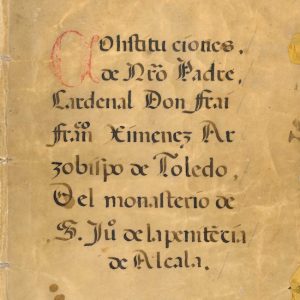 Constituciones.
de Nro͂ Padre,
Cardenal Don Frai
Fran͞co Ximenez Ar
zobispo de Toledo,
Del monasterio de
S. Juº de la penitēcia
de Alcala.